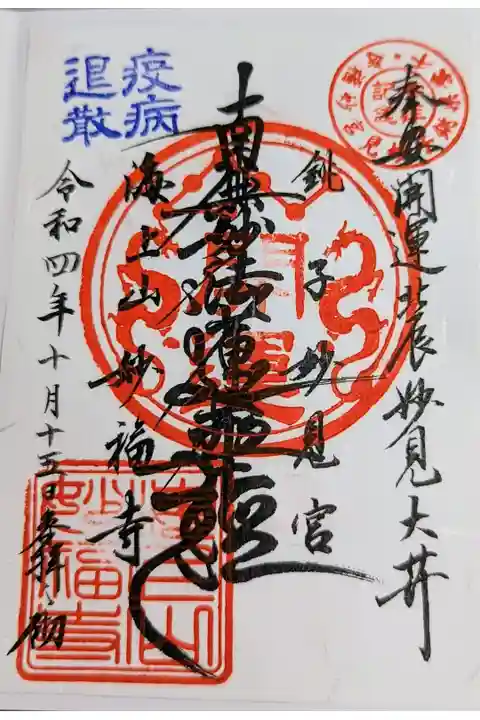 奉安開運北辰妙見大井
銚子妙見宮
南無妙法蓮華経
海上山妙福寺
疫病
退散
令和四年十月十五日奉拝
海上山
妙福寺